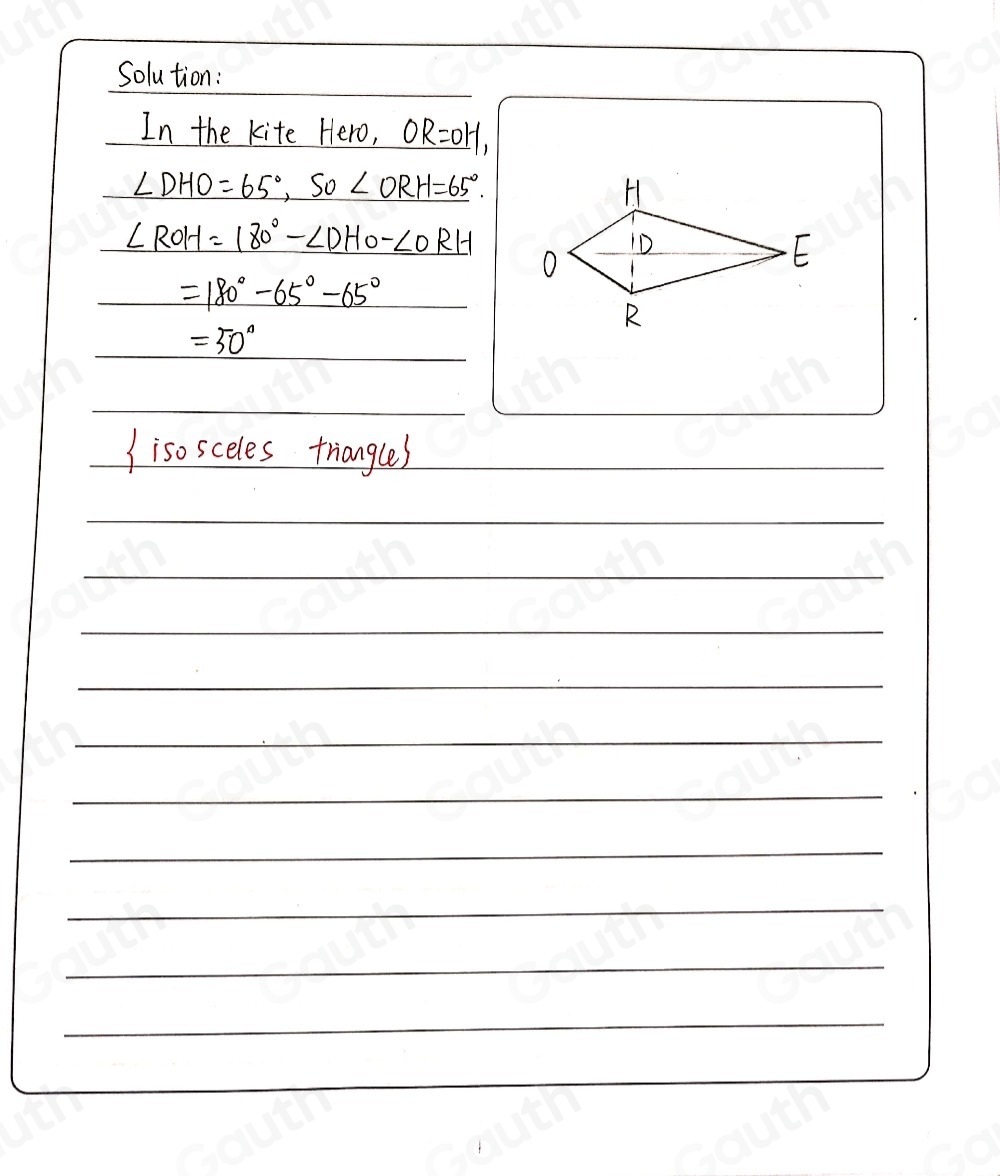 Solution:
In the kite Hero, OR=OH,
∠DHO=65°, So ∠ORH=65°.
∠ROH=180°-∠DHO-∠ORH
=180°-65°-65°
=50°
{isosceles triangle}
H
O
D
E
R